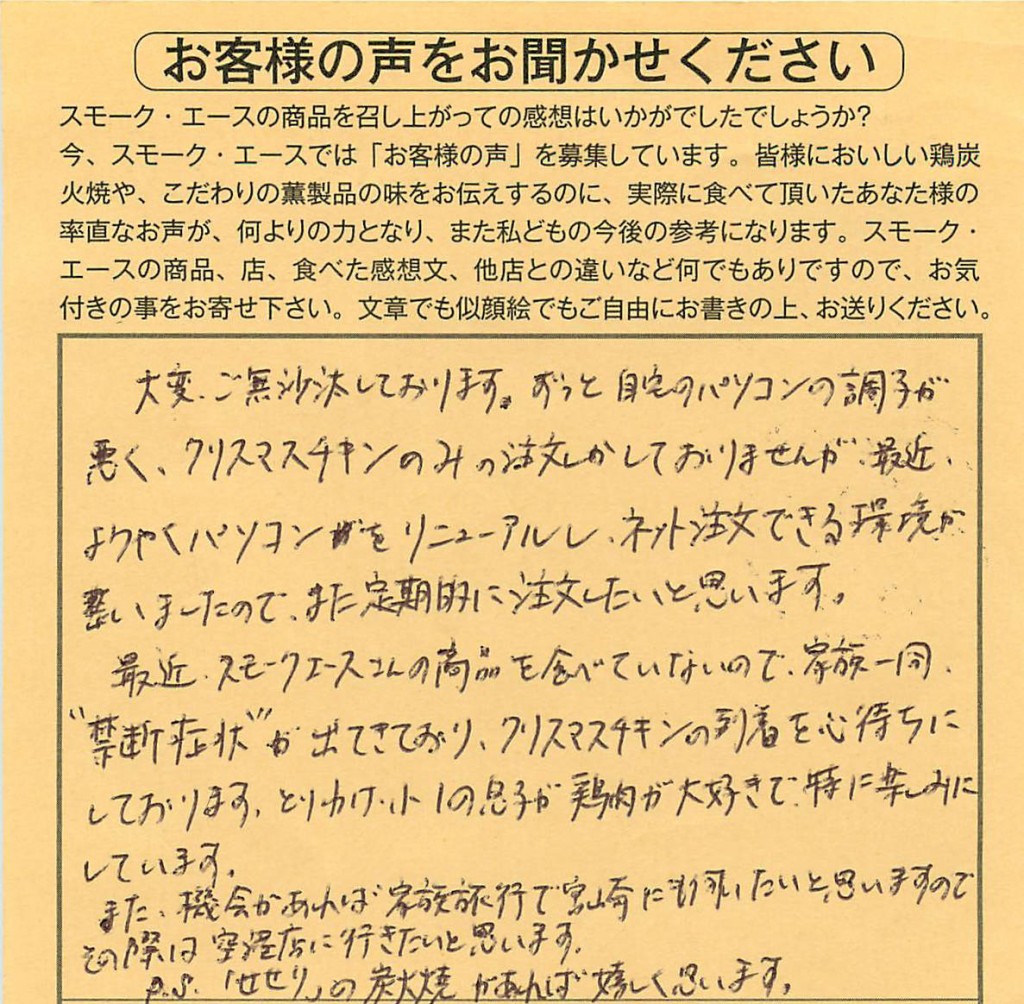 お客様の声をお聞かせください
スモーク・エースの商品を召し上がっての感想はいかがでしたでしょうか?
今、スモーク・エースでは「お客様の声」を募集しています。皆様においしい鶏炭
火焼や、こだわりの薫製品の味をお伝えするのに、実際に食べて頂いたあなた様の
率直なお声が、何よりの力となり、また私どもの今後の参考になります。スモーク・
エースの商品、店、食べた感想文、他店との違いなど何でもありですので、お気
付きの事をお寄せ下さい。文章でも似顔絵でもご自由にお書きの上、お送りください。
大変、ご無沙汰しております。ずっと自宅のパソコンの調子が
悪く、クリスマスチキンのみの注文しかしておりませんが、最近、
ようやくパソコンをリニューアルし、ネット注文できる環境が
整いましたので、また定期的に注文したいと思います。
最近、スモークエースさんの商品を食べていないので、家族一同、
“禁断症状”が出てきており、クリスマスチキンの到着を心待ちに
しております。とりわけ、小1の息子が鶏肉が大好きで、特に楽しみに
しています。
また、機会があれば家族旅行で宮崎にも伺いたいと思いますので
その際は空港店に行きたいと思います。
P.S.「せせり」の炭火焼があれば嬉しく思います。